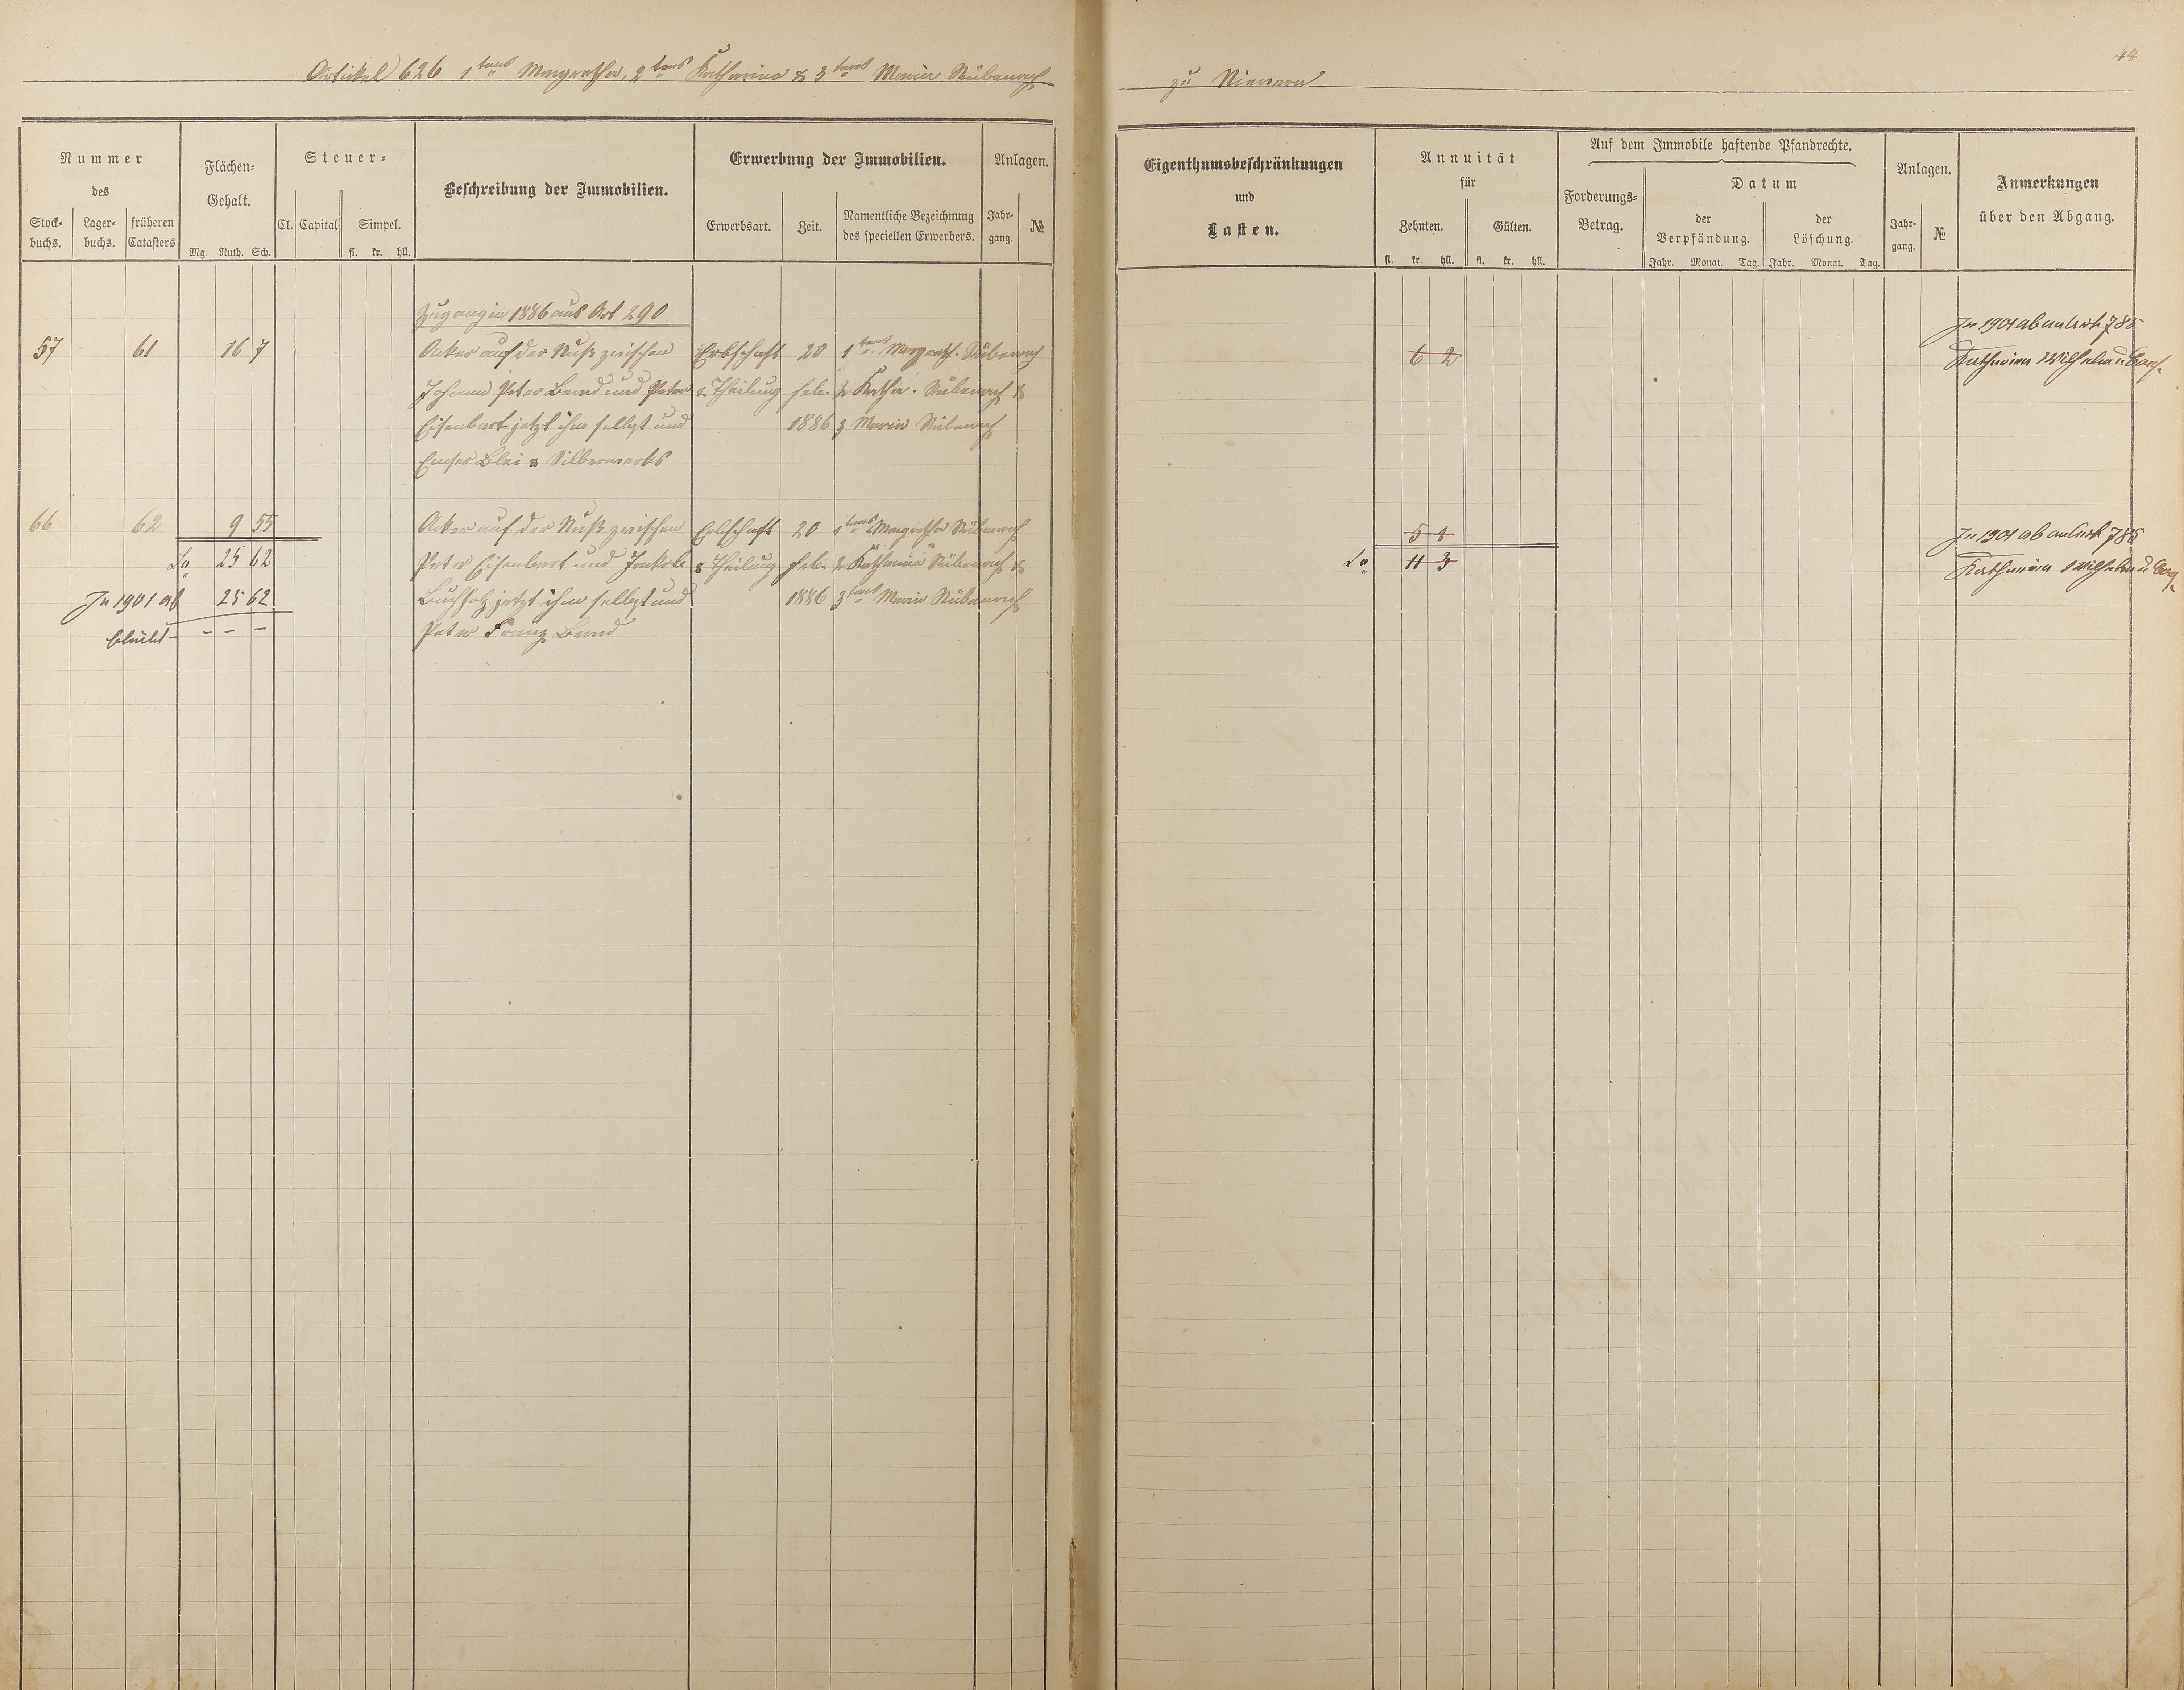 44
Artikel 626 1tens Margretha, 2tens Katharina & 3tens Maria Stübenrach zu Nievern
Nummer
des
Stock-
buchs.
Lager-
buchs.
früheren
Catasters
Flächen-
Gehalt.
Mg. Ruth. Sch.
Steuer-
Cl. Capital Simpel.
fl. kr. hll.
Beschreibung der Immobilien.
Erwerbung der Immobilien.
Erwerbsart. Zeit.
Namentliche Bezeichnung
des speciellen Erwerbers.
Anlagen.
Jahr-
gang.
№
Eigenthumsbeschränkungen
und
Lasten.
Annuität
für
Zehnten. Gülten.
fl. kr. hll. fl. kr. hll.
Auf dem Immobile haftende Pfandrechte.
Forderungs-
Betrag.
Datum
der
Verpfändung.
der
Löschung.
Jahr. Monat. Tag. Jahr. Monat. Tag.
Anlagen.
Jahr-
gang.
№
Anmerkungen
über den Abgang.
Zugang in 1886 aus Art 290
57 61 16 7 Acker auf der Nuß zwischen Erbschaft 20 1tens Margreth. Stübenrach 6 2
Johann Peter Bernd und Peter & Theilung febr. 2 Katha. Stübenrach &
Eisenbart jetzt ihm selbst und 1886 3 Maria Stübenrach
Emser Blei & Silberwerks
In 1901 ab an Art 785
Katharina Wilhelm u Cons.
66 62 9 55 Acker auf der Nuß zwischen Erbschaft 20 1tens Margretha Stübenrach 5 1
Sa 25 62 Peter Eisenbart und Jakob & Theilung febr. 2 Katharina Stübenrach & Sa 11 3
In 1901 ab 25 62 Buchholz jetzt ihm selbst und 1886 3tens Maria Stübenrach
bleibt - - - - Peter Franz Bernd
In 1901 ab an Art 785
Katharina Wilhelm u Cons.